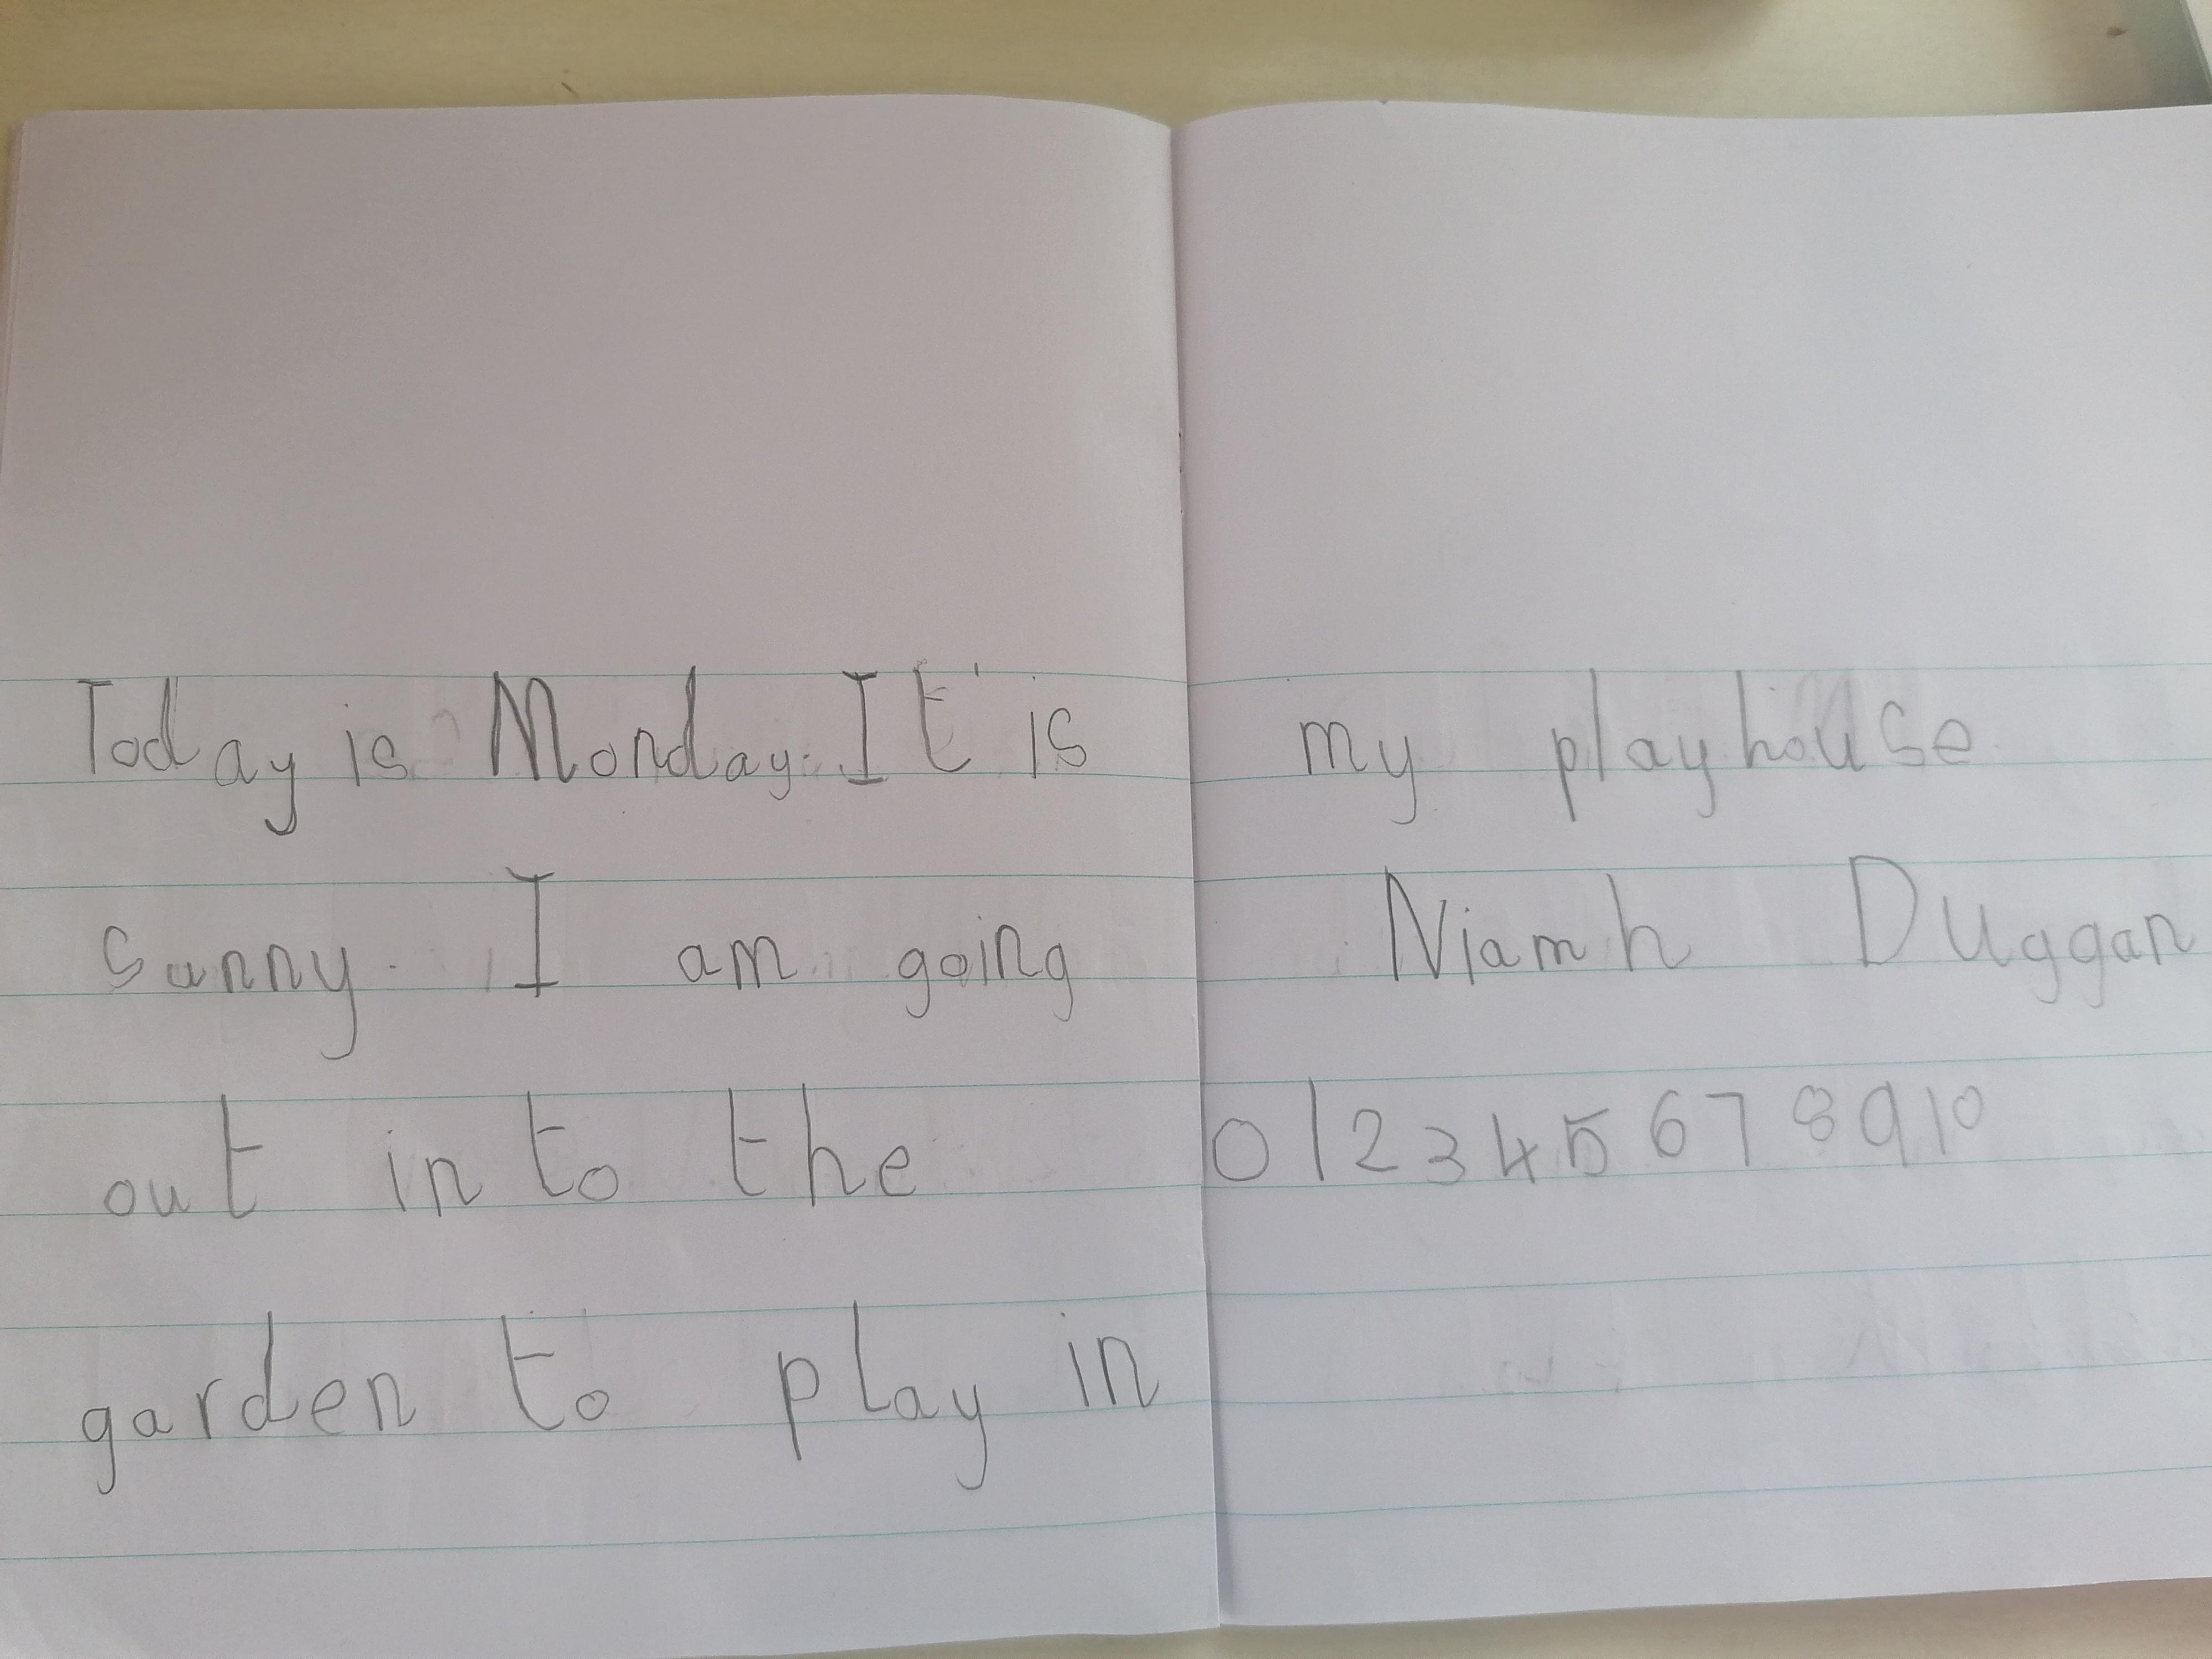 Today is Monday. It is
sunny. I am going
out in to the
garden to play in
my playhouse
Niamh Duggan
0 1 2 3 4 5 6 7 8 9 10